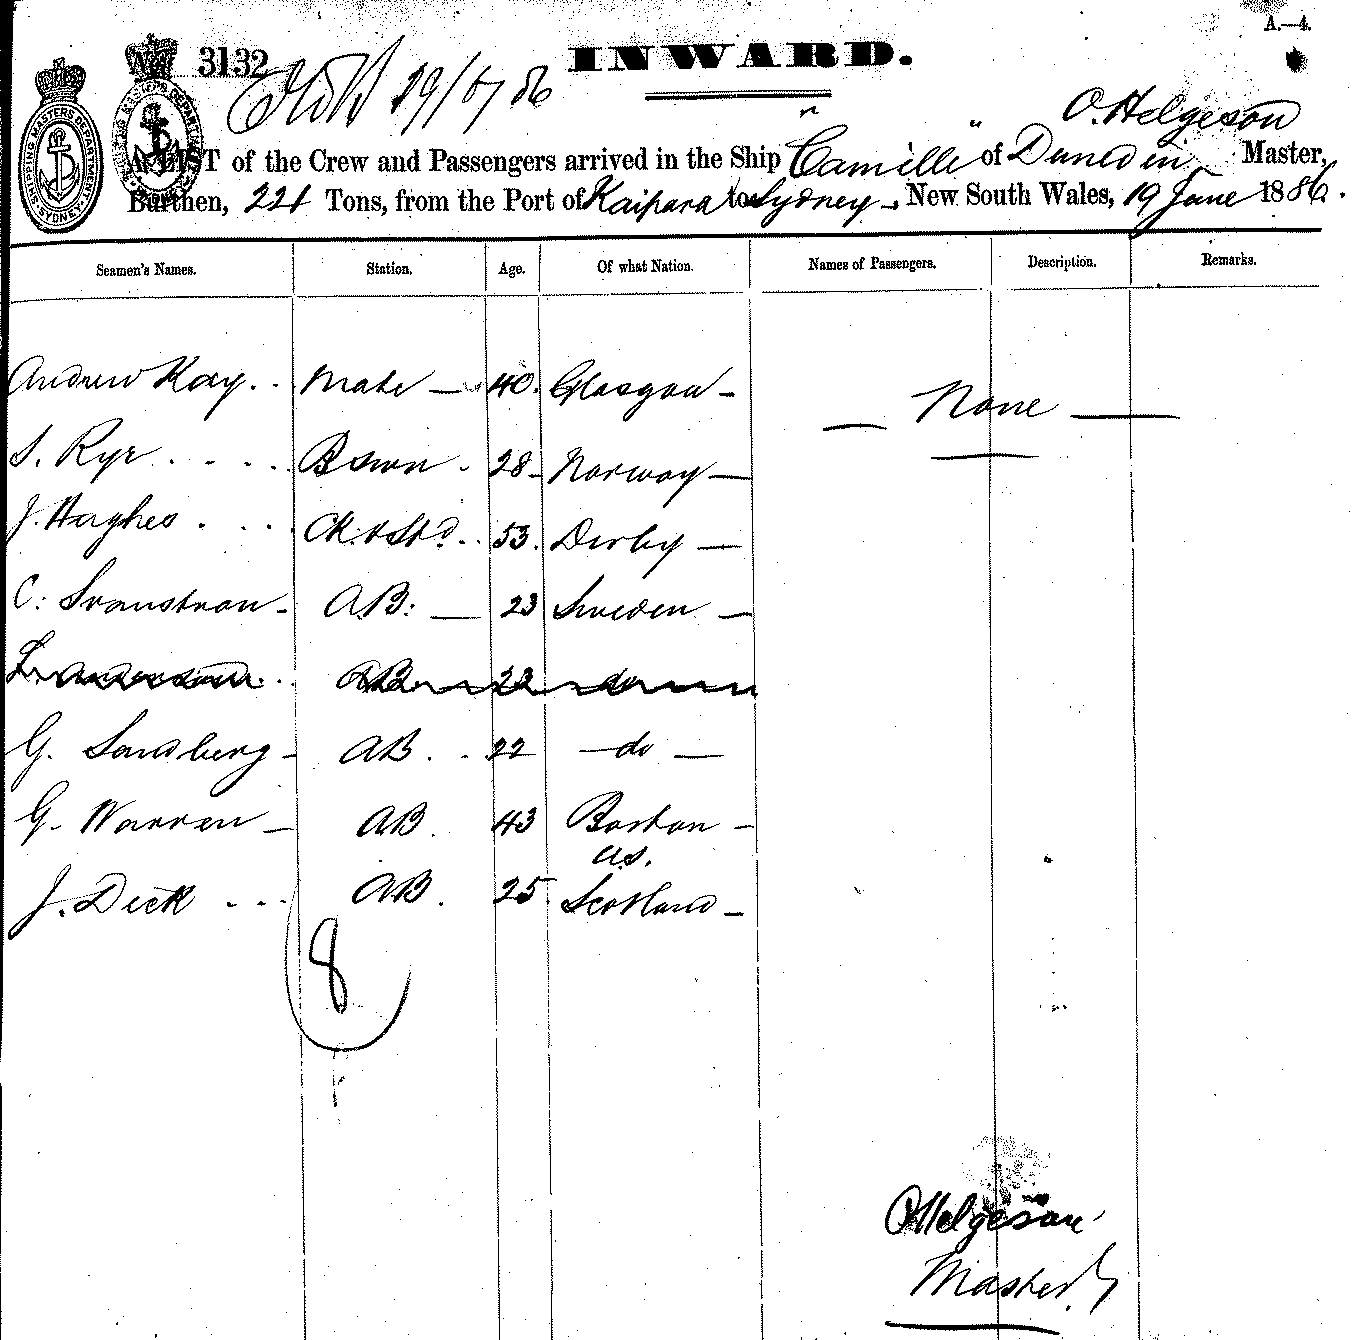 A.—4.
3132
INWARD.
SHIPPING MASTERS DEPARTMENT
SYDNEY
O. Helgeson
A LIST of the Crew and Passengers arrived in the Ship "Camille" of Dunedin Master,
Burthen, 221 Tons, from the Port of Kaipara to Sydney - New South Wales, 19 June 1886.
Seamen's Names. Station. Age. Of what Nation. Names of Passengers. Description. Remarks.
Andrew Kay. . Mate — 40. Glasgow - — None —
S. Rye . . . . Bswn . 28 - Norway —
J. Hughes . . . . Ck & Std. . 53. Derby —
C: Svanstron - AB: — 23 Sweden —
AB 23 do
G. Sandberg - AB . . 22 — do —
G. Warren — AB . 43 Boston -
U.S.
J. Dick . . . AB . 25 Scotland -
8
O Helgeson
Master